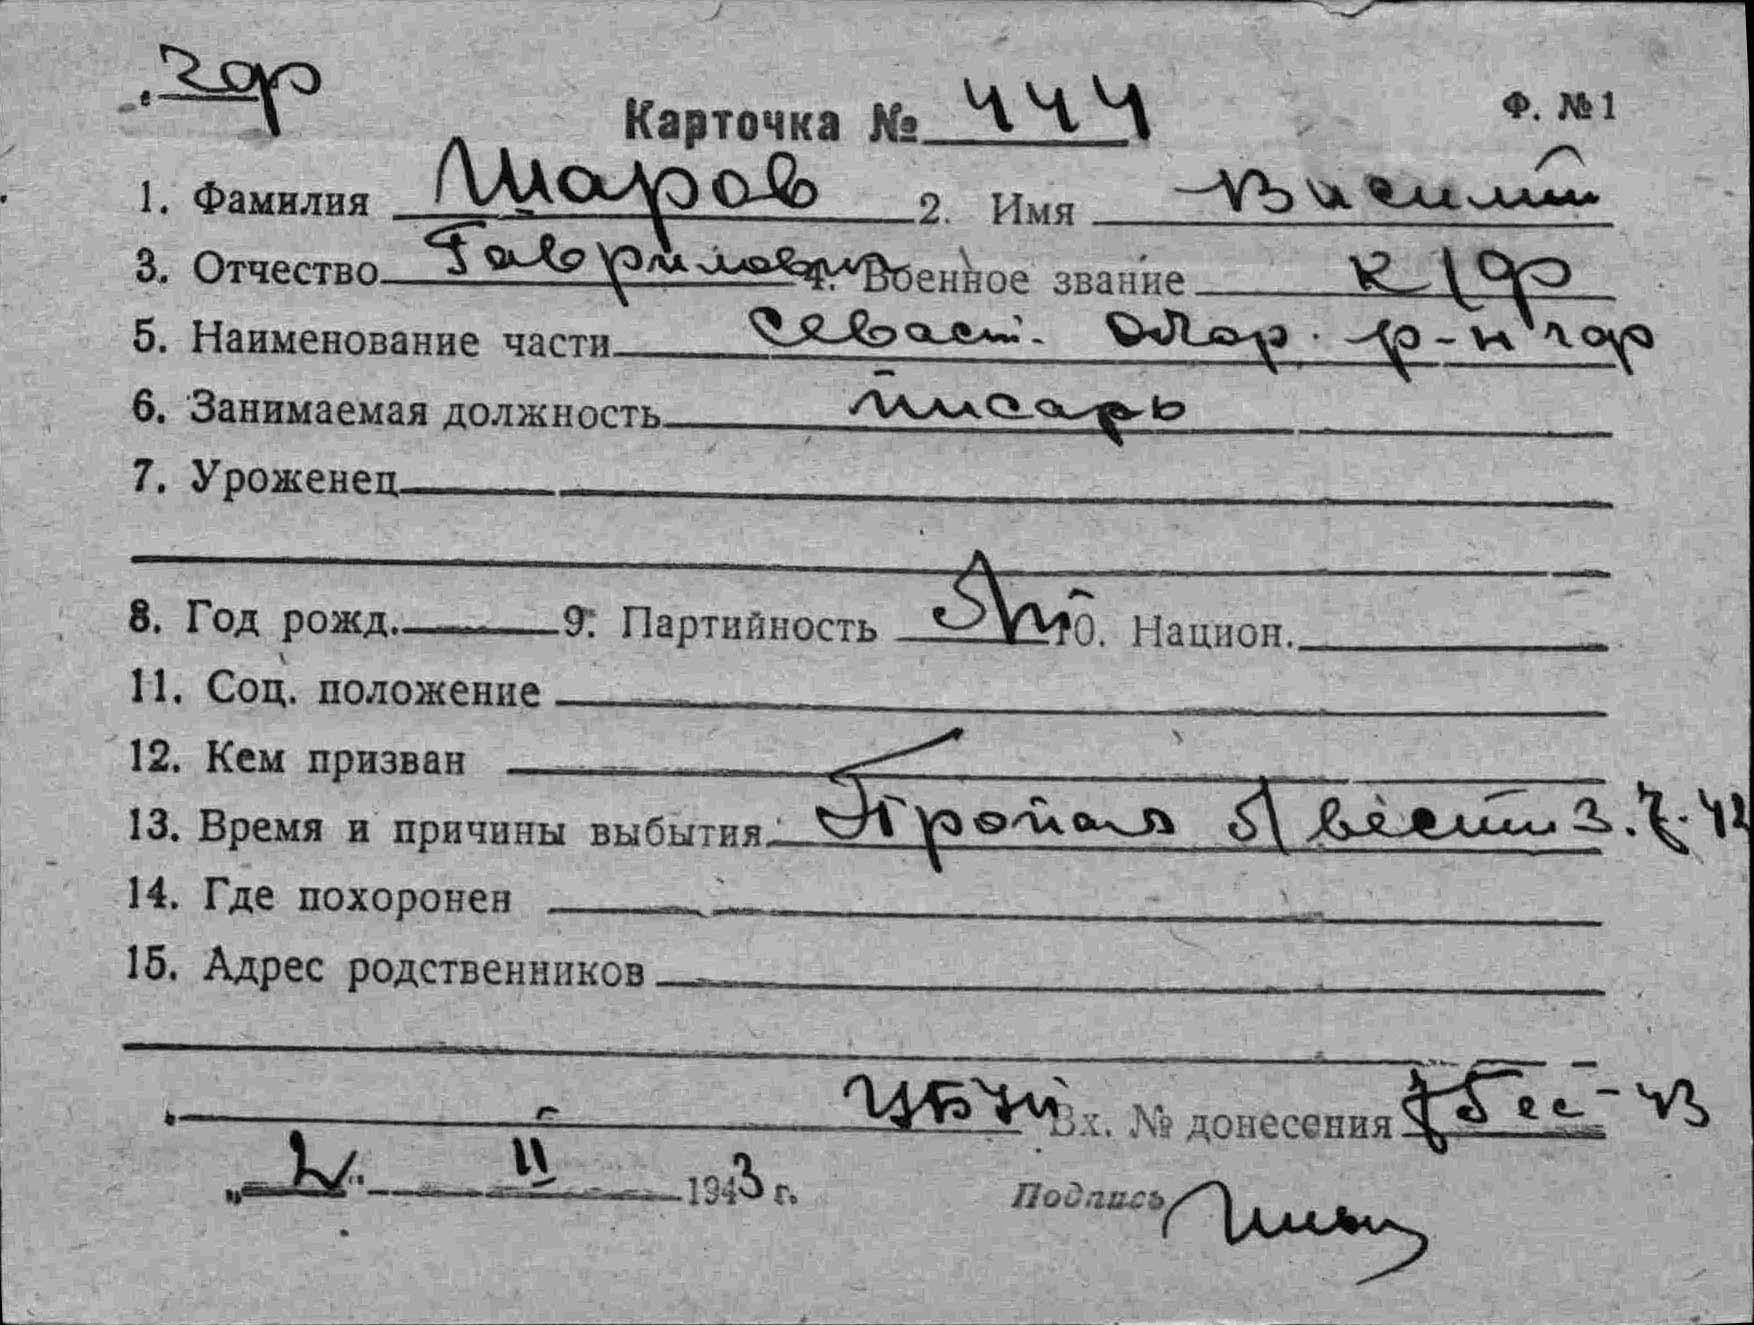 чф
Карточка № 444 Ф. № 1
1. Фамилия Шаров 2. Имя Василий
3. Отчество Гаврилович 4. Военное звание к/ф
5. Наименование части Севаст. р-н чф
6. Занимаемая должность писарь
7. Уроженец
8. Год рожд. 9. Партийность б/п 10. Национ.
11. Соц. положение
12. Кем призван
13. Время и причины выбытия Пропал б/вести 3.7.42
14. Где похоронен
15. Адрес родственников
Вх. № донесения
„2“ II 1943 г. Подпись